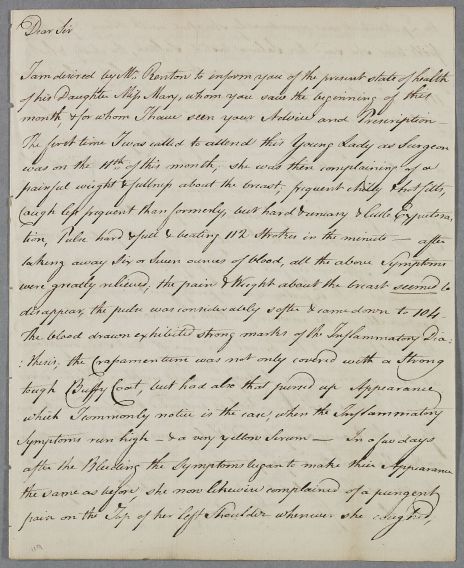 Dear Sir
I am desired by Mr. Renton to inform you of the present state of health
of his Daughter Miss Mary, whom you saw the beginning of this
month, & for whom I have seen your Advice and Prescription —
The first time I was called to attend this Young Lady as Surgeon
was on the 11th. of this month; she was then complaining of a
painful weight & fullness about the breast; frequent Chilly & hot fitts,
Cough less frequent than formerly, but hard & uneasy & little Expectora-
tion, Pulse hard & full & beating 112 Strokes in the minute — after
taking away Six or Seven ounces of blood, all the above Symptoms
were greatly relieved, the pain & Weight about the breast seemed to
disappear, the pulse was considerably softer & came down to 104
The blood drawn exhibited strong marks of the Inflammatory Dia-
:thesis; the Crassamentum was not only covered with a Strong
tough Buffy Coat, but had also that pursed up Appearance
which I commonly notice is the case, when the Inflammatory
Symptoms run high — & a very yellow Serum — In a few days
after the Bleeding the Symptoms began to make their Appearance
the same as before, she now likewise complained of a pungent
pain on the Top of her left Shoulder whenever she coughed,